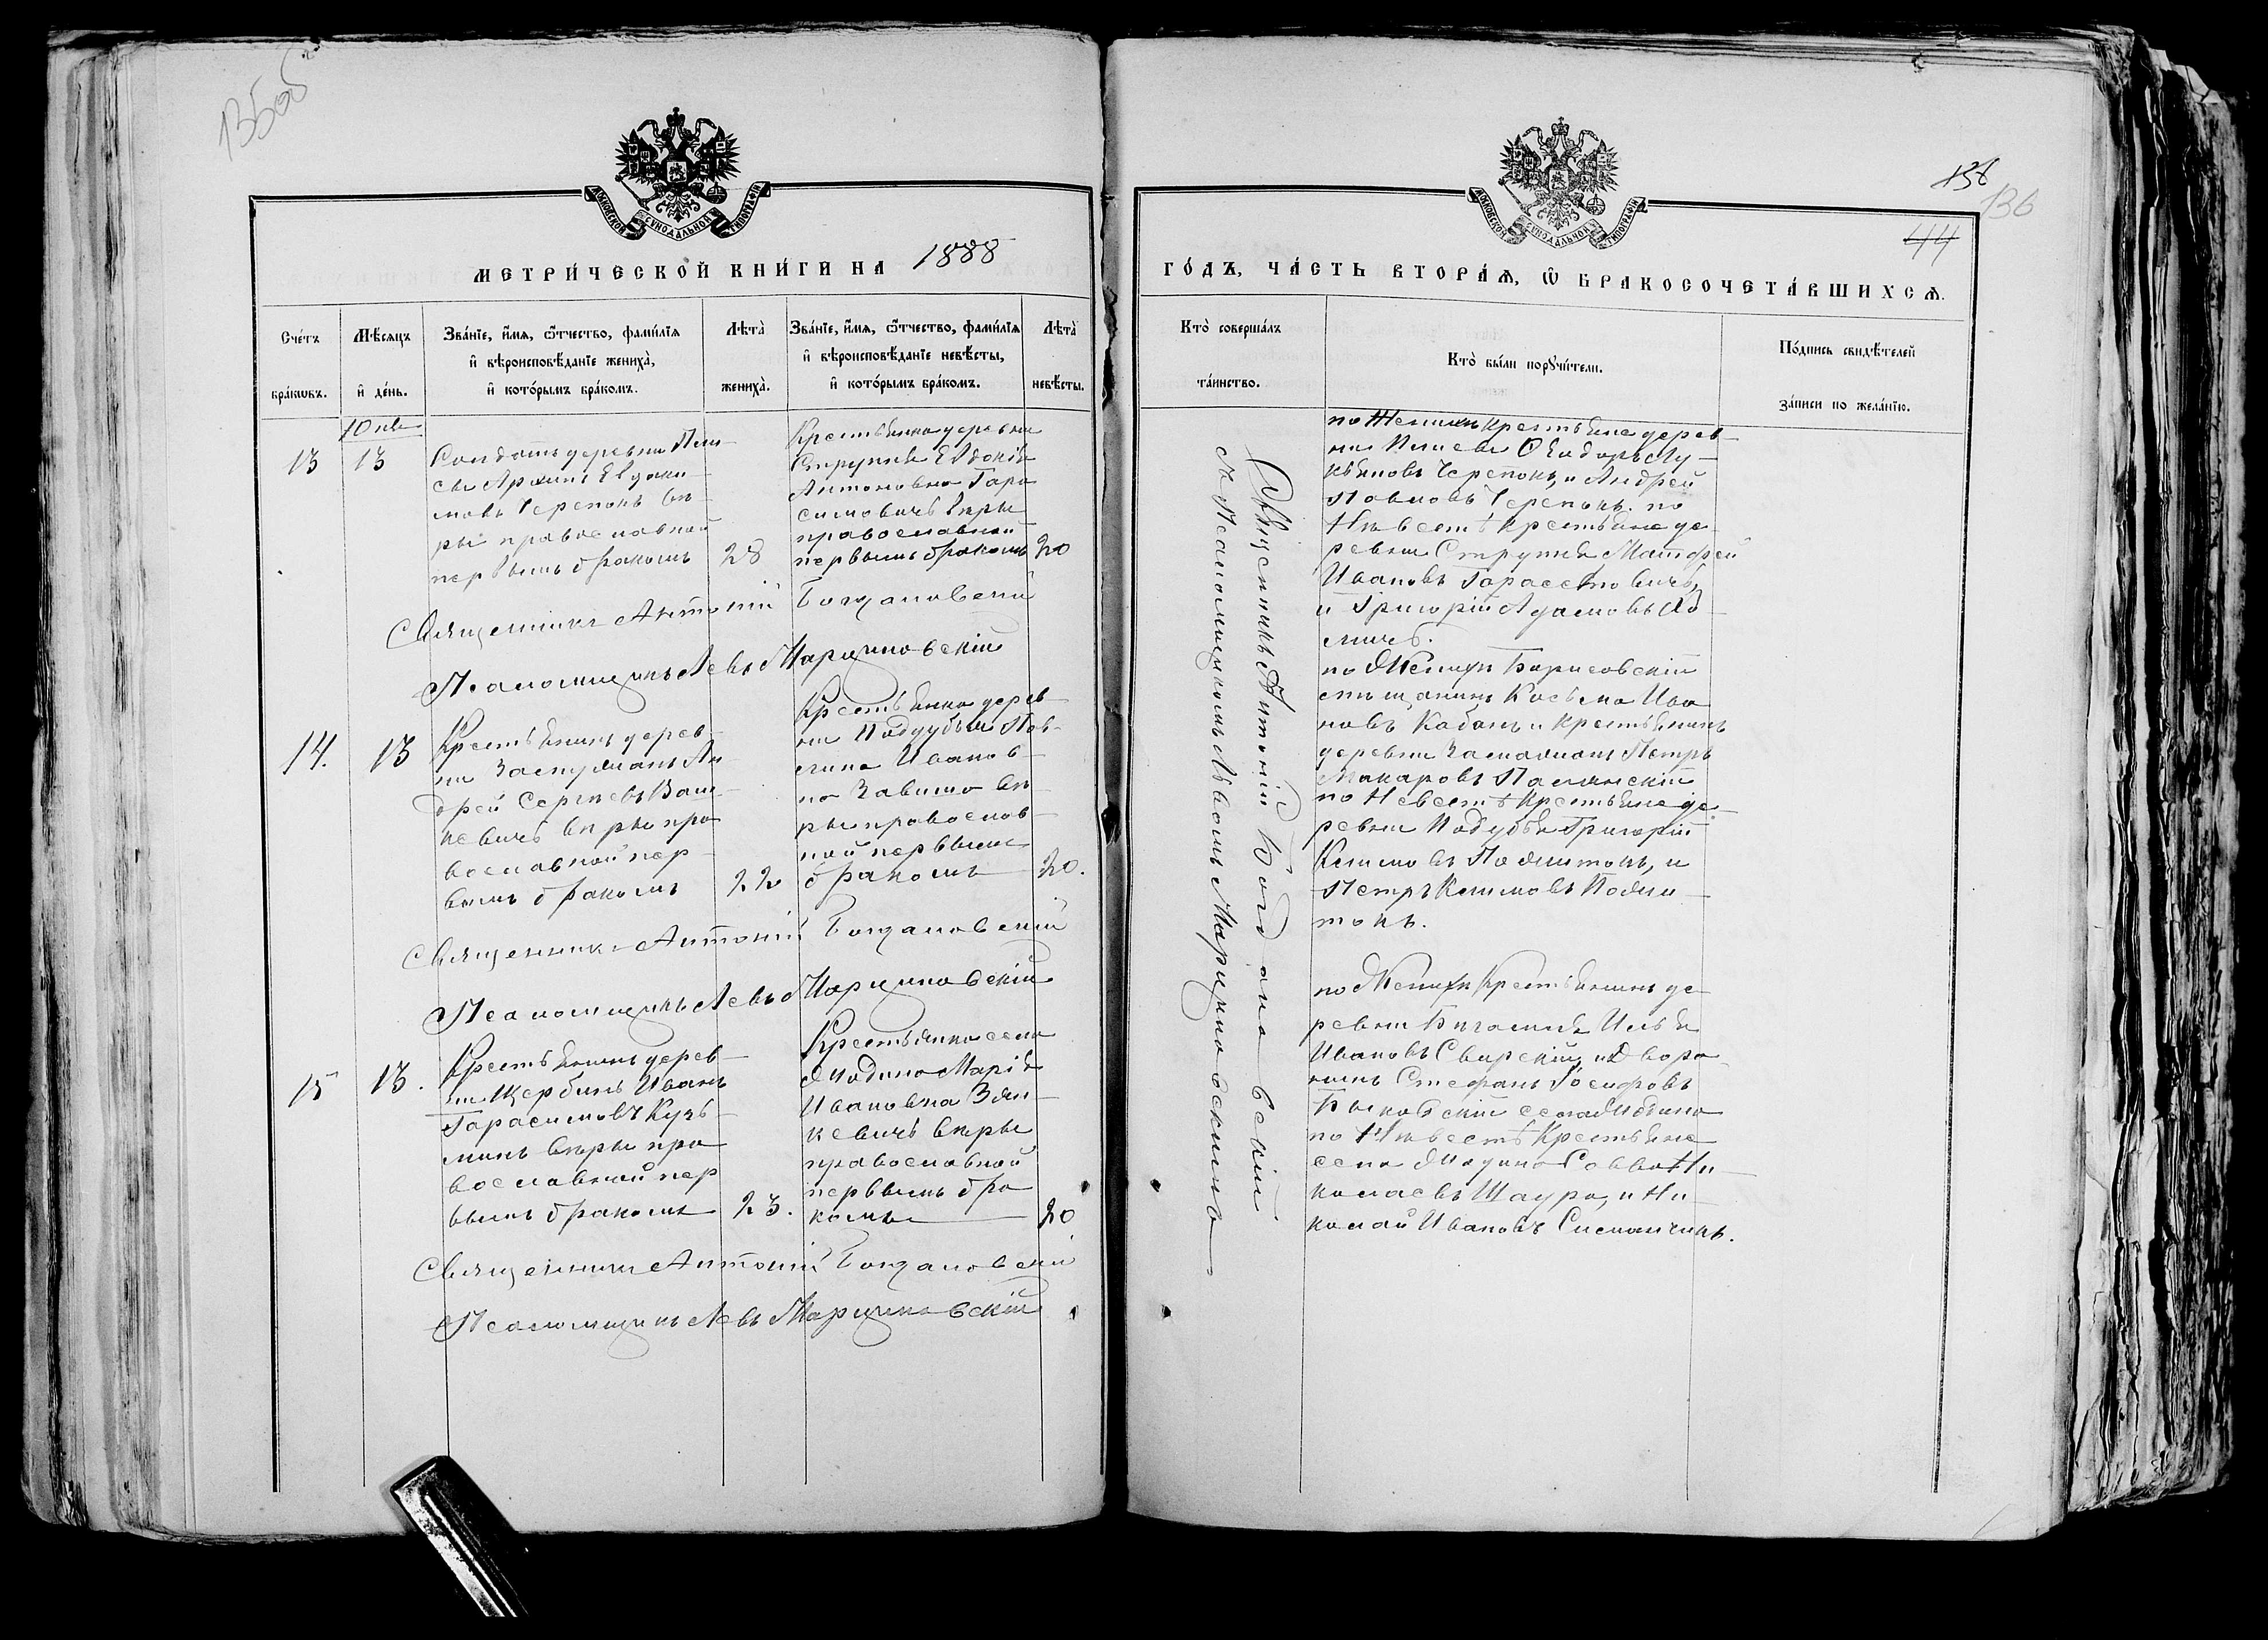 135об
МЕТРИ́ЧЕСКОЙ КНИ́ГИ НА 1888
Сче́тъ бра́кѡвъ.
Мѣ́сяцъ и҆ де́нь.
Зва́нїе, и҆́мя, ѻ҆́тчество, фами́лїя и҆ вѣроисповѣ́данїе жениха̀, и҆ кото́рымъ бра́комъ.
Лѣта̀ жениха̀.
Зва́нїе, и҆́мя, ѻ҆́тчество, фами́лїя и҆ вѣроисповѣ́данїе невѣ́сты, и҆ кото́рымъ бра́комъ.
Лѣта̀ невѣ́сты.
13
13
Солдатъ деревни
Евдоки-
мовъ Черепокъ вѣ-
ры православной
первымъ бракомъ
28
Крестьянка деревни
Струпня Евдокія
Антоновна Гара
симовичъ вѣры
православной
первымъ бракомъ
20
Священникъ Антоній Богдановскій
Псаломщикъ Левъ Марциновскій
14.
13
Крестьянинъ дерев-
ни Ан
дрей Сергѣевъ
кевичъ вѣры пра
вославной пер-
вымъ бракомъ
22
Крестьянка дерев-
ни Поддубья Пов-
лина Иванов-
на вѣ-
ры православ-
ной первымъ
бракомъ
20.
Священникъ Антоній Богдановскій
Псаломщикъ Левъ Марциновскій
15
13.
Крестьянинъ дерев-
ни Щербинъ Иванъ
Гарасимовъ Кузь-
минъ вѣры пра
вославной пер
вымъ бракомъ
23.
Крестьянка села
Марія
Ивановна Зен-
кевичъ вѣры
православной
первымъ бра
комъ
20
Священникъ Антоній Богдановскій
Псаломщикъ Левъ Марциновскій
136
136
44
ГО́ДЪ, ЧА́СТЬ ВТОРА́Ѧ, Ѡ҆ БРАКОСОЧЕТА́ВШИХСѦ.
Кто̀ соверша́лъ та́инство.
Кто̀ бы́ли порꙋчи́тели.
По́дпись свидѣ́телей за́писи по жела́нїю.
Священникъ Антоній Богдановскій
съ Псаломщикомъ Львомъ Марциновскимъ
по Женихѣ крестьяне дерев-
ни Ѳеодоръ Лу-
кьяновъ Черепокъ, и Андрей
Павловъ Черепокъ. по
Невестѣ крестьяне де-
ревни Струпня Матфей
Ивановъ Гарасимовичъ,
и Григорій Адамовъ Ад
амичъ.
по Женихѣ Борисовскій
мѣщанинъ Косьма Ива
новъ Кабакъ и крестьянинъ
деревни Петръ
Макаровъ
по Невестѣ Крестьяне де-
ревни Подубья Григорій
Климовъ и
Петръ Климовъ
токъ.
по Женихѣ Крестьянинъ де
ревни Илья
Ивановъ Свирскій и Дворя-
нинъ Стефанъ Іосифовъ
Быковскій села
по Невестѣ Крестьяне
села Савва Ни
колаевъ Шауро, и Ни
колай Ивановъ